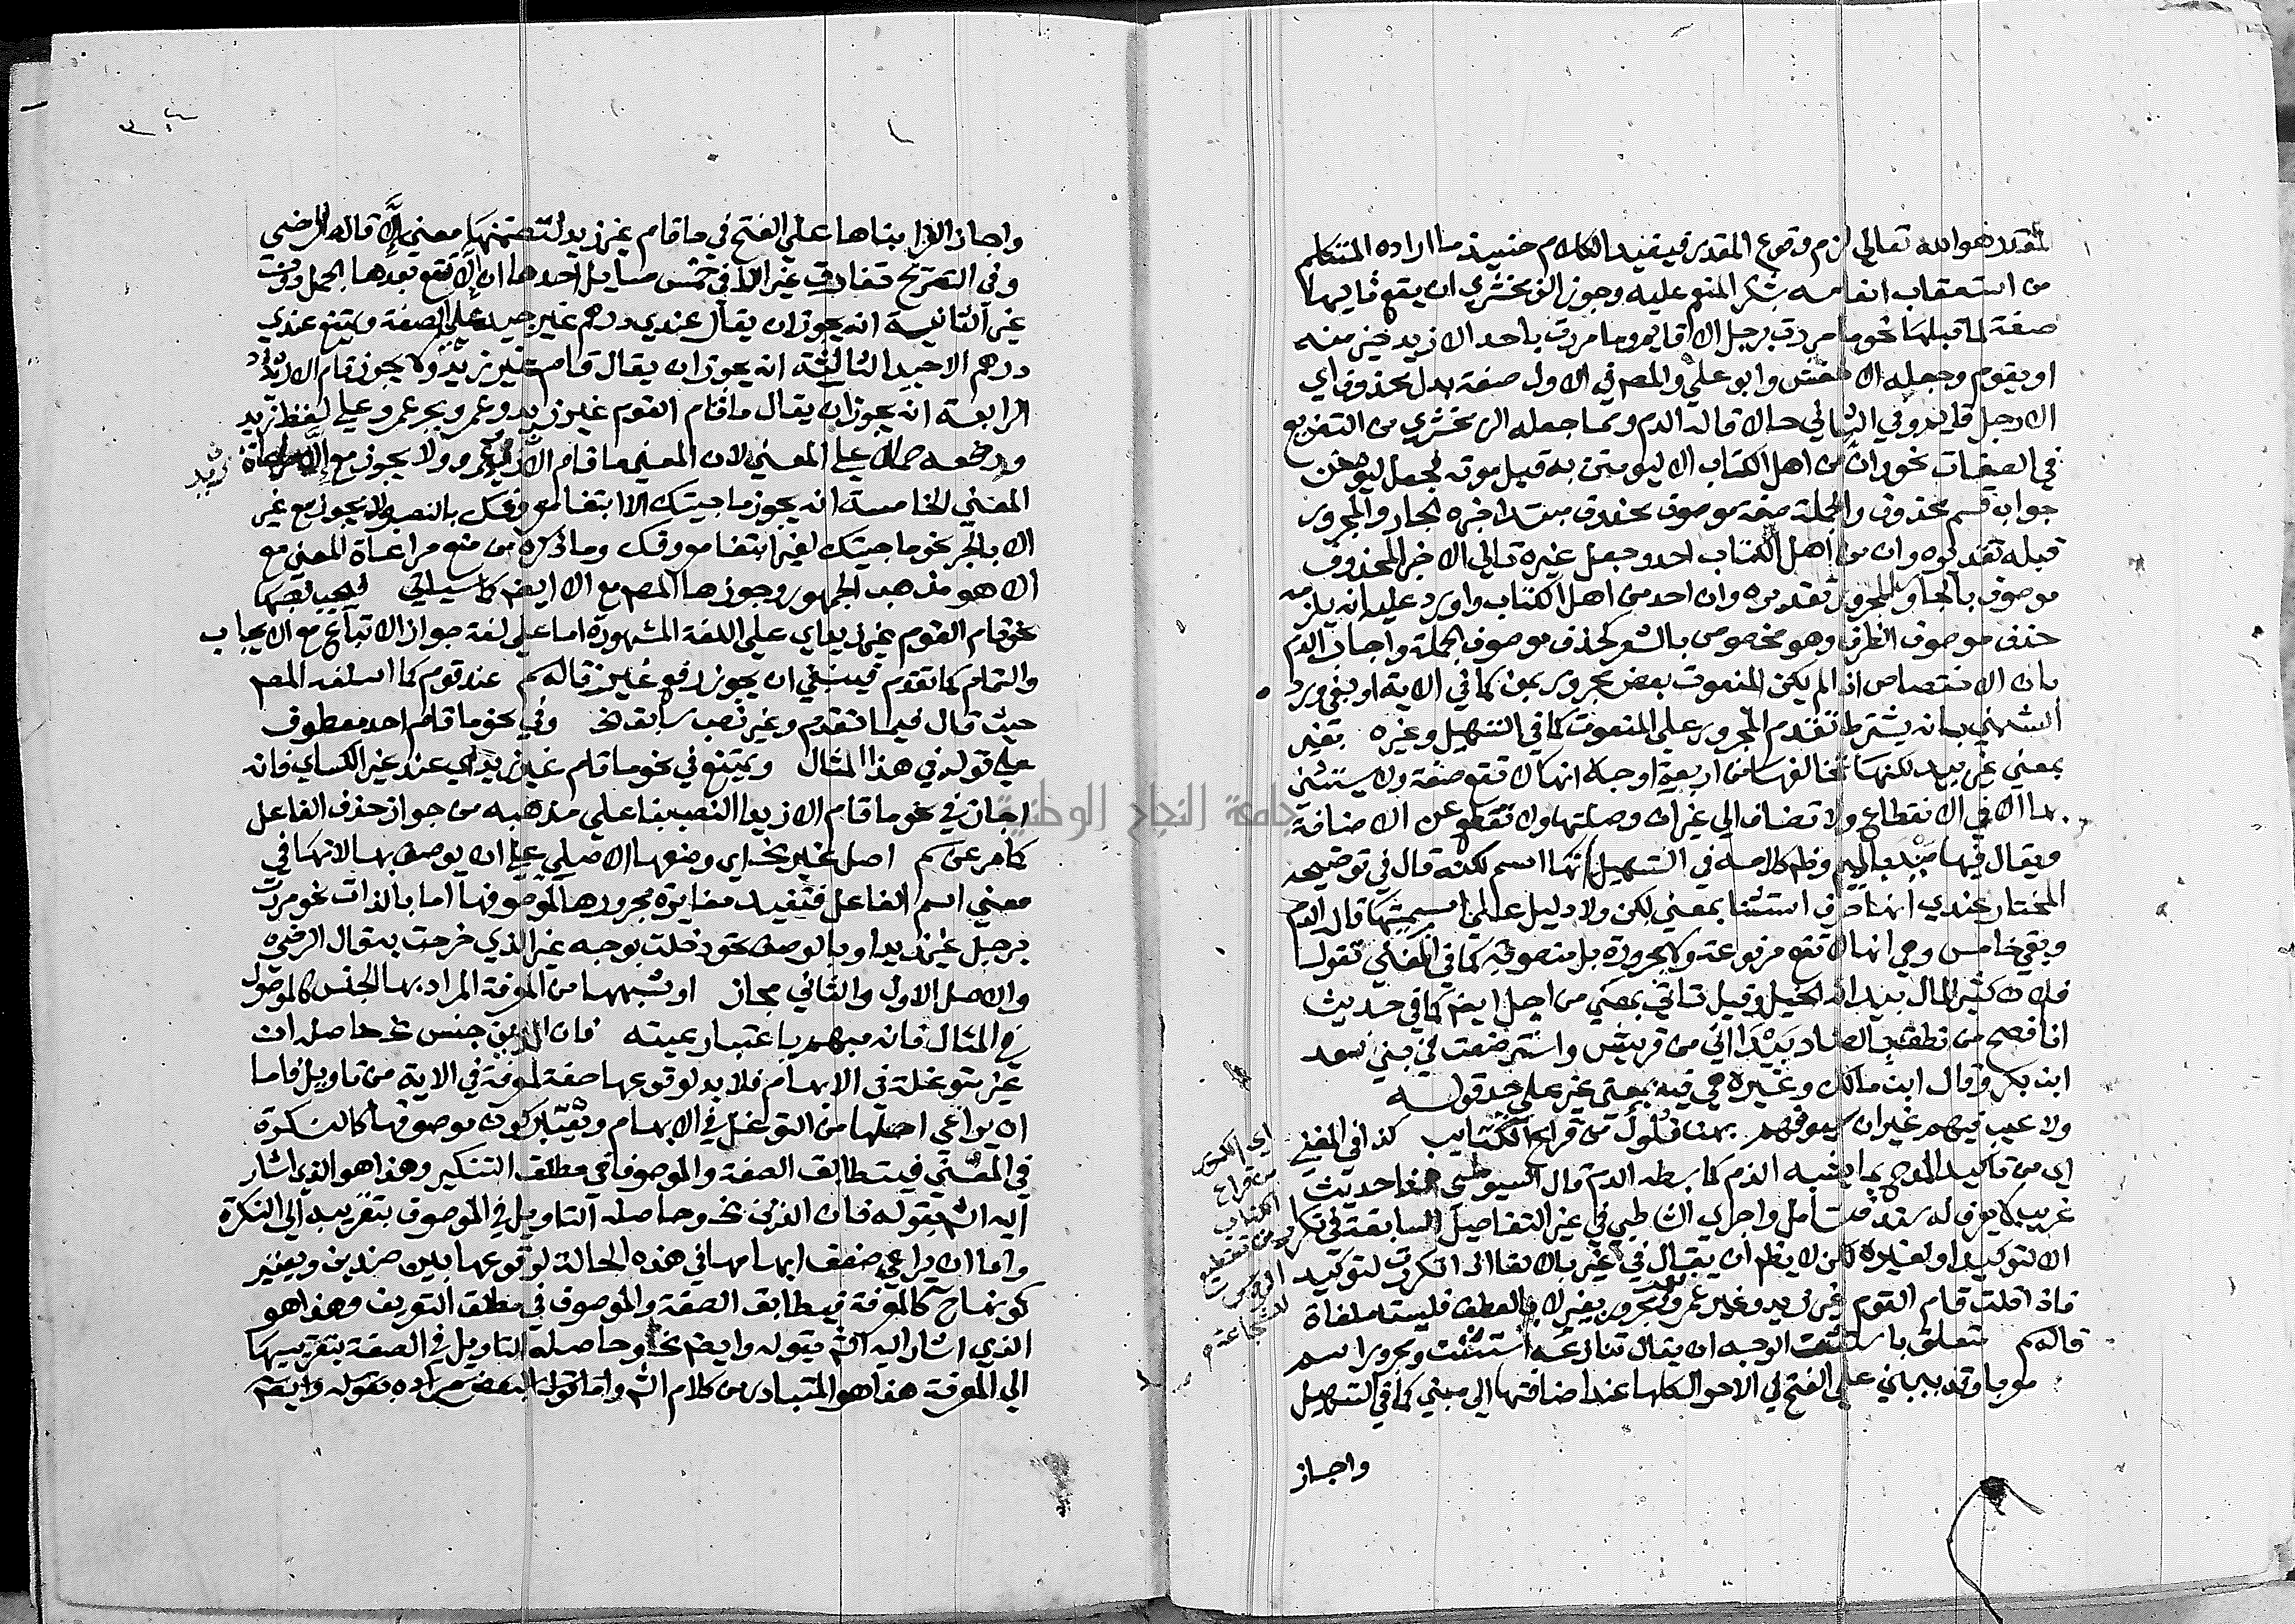 لتقديره هو الله تعالى لزم وقوع المقدر فيفيد الكلام حينئذ ما اراده المتكلم
من استعقاب انعامه بشكر المنعم عليه وجوز الزمخشري ان يقع تاليها
صفة لما قبلها نحو ما مررت برجل الا قايم وما مررت باحد الا زيد خير منه
او يقوم وجعله الاخفش وابو علي والمصم في الاول صفة بدل محذوف اي
الا رجل قايم وفي الثاني حالا قاله الدم ومما جعله الزمخشري من التفريغ
في الصفات نحو وان من اهل الكتاب الا ليومنن به قبل موته فجعل ليومنن
جواب قسم محذوف والجملة صفة موصوف محذوف مبتدا خبره الجار والمجرور
قبله تقديره وان من اهل الكتاب احد وجعل غيره تالي الا خبر المحذوف
موصوف بالجار والمجرور تقديره وان احد من اهل الكتاب واورد عليه انه يلزمه
حذف موصوف الظرف وهو مخصوص بالشعر كحذف موصوف الجملة واجاب الدم
بان الاختصاص اذا لم يكن المنعوت بعض مجرور بمن كما في الاية او بفي ورد
الشمني بانه يشترط تقدم المجرور على المنعوت كما في التسهيل وغيره بغير
بمعنى غير بيد لكنها تخالفها من اربعة اوجه انها لا تقع صفة ولا يستثنى
بها الا في الانقطاع ولا تضاف الى غير ان وصلتها ولا تقطع عن الاضافة
ويقال فيها ميد بالميم وظم كلامه في التسهيل انها اسم لكنه قال في توضيحه
المختار عندي انها حرف استثنا بمعنى لكن ولا دليل على اسميتها قال الدم
وبقي خامس وهي انها لا تقع مرفوعة ولا مجرورة بل منصوبة كما في المغني تقول
فلان كثير المال بيد انه بخيل وقيل تاتي بمعنى من اجل ايضم كما في حديث
انا افصح من نطق بالضاد بيد اني من قريش واسترضعت في بني سعد
ابن بكر وقال ابن مالك وغيره هي فيه بمعنى غير على حد قوله
ولا عيب فيهم غير ان سيوفهم بهن فلول من قراع الكتايب كذا في المغني
اي من تاكيد المدح بما يشبه الذم كما بسطه الدم قال السيوطي هذا حديث
غريب لا يعرف له سند فتامل واجري الشاطبي في غير التفاصيل السابقة في تكرار
الا لتوكيد او لغيره لكن لا يظم ان يقال في غير بالالغا اذا تكررت لتوكيد
فاذا قلت قام القوم غير زيد وغير عمرو فعمرو مجرور بغير لا بالعطف فليست ملغاة
قاله م متعلق باستثنت الوجه ان يقال تنازعه استثنت ومجرورا سم
معربا وقد تبنى على الفتح في الاحوال كلها عند اضافتها الى مبني كما في التسهيل
واجاز
اي الكسر
من قراع
الكتايب
من تقطيع
واجاز الفرا بناها على الفتح في ما قام غير زيد لتضمنها معنى إلّا قاله الرضي
وفي التصريح تفارق غير الا في خمس مسايل احدها ان إلّا تقع بعدها الجمل دون
غير الثانية انه يجوز ان يقال عندي درهم غير جيد على الصفة ويمتنع عندي
درهم الا جيد الثالثة انه يجوز ان يقال قام غير زيد ولا يجوز قام الا زيد
الرابعة انه يجوز ان يقال ما قام القوم غير زيد وعمرو بجر عمرو على لفظ زيد
ورفعه حملا على المعنى لان المعنى ما قام الا زيد وعمرو ولا يجوز مع إلّا مراعاة
المعنى الخامسة انه يجوز ما جيتك الا ابتغا معروفك بالنصب ولا يجوز مع غير
الا بالجر نحو ما جيتك لغير ابتغا معروفك وما ذكره من منع مراعاة المعنى مع
الا هو مذهب الجمهور وجوزها المصم مع الا ايضم كما سياتي فيجب نصبها
نحو قام القوم غير زيد اي على اللغة المشهورة اما على لغة جواز الاتباع مع الايجاب
والتمام كما تقدم فينبغي ان يجوز رفع غير قاله م عند قوم كما اسلفه المصم
حيث قال فيما تقدم وغير نصب سابق نخ وفي نحو ما قام احد معطوف
على قوله في هذا المثال ويمتنع في نحو ما قام غير زيد اي عند غير الكساي فانه
اجاز في نحو ما قام الا زيدا النصب بنا على مذهبه من جواز حذف الفاعل
كما مر عن م اصل غير نخ اي وضعها الاصلي على ان يوصف بها لانها في
معنى اسم الفاعل فتفيد مغايرة مجرورها لموصوفها اما بالذات نحو مررت
برجل غير زيد او بالوصف نحو دخلت بوجه غير الذي خرجت به قال الرضي
والاصل الاول والثاني مجاز او شبهها من المعرفة المراد بها الجنس كالموصول
في المثال فانه مبهم باعتبار عينه فان الذين جنس نخ حاصله ان
غير متوغلة في الابهام فلا بد لوقوعها صفة لمعرفة في الاية من تاويل فاما
ان يراعى اصلها من التوغل في الابهام ويعتبر كون موصوفها كالنكرة
في المعنى فيتطابق الصفة والموصوف في مطلق التنكير وهذا هو الذي اشار
اليه الشم بقوله فان الذين نخ وحاصله التاويل في الموصوف بتقريبه الى النكرة
واما ان يراعى ضعف ابهامها في هذه الحالة لوقوعها بين ضدين ويعتبر
كونها ح كالمعرفة فيطابق الصفة والموصوف في مطلق التعريف وهذا هو
الذي اشار اليه الشم بقوله وايضم نخ وحاصله التاويل في الصفة بتقريبها
الى المعرفة هذا هو المتبادر من كلام الشم واما قول البعض مراده بقوله وايضم
زيد
جامعة النجاح الوطنية